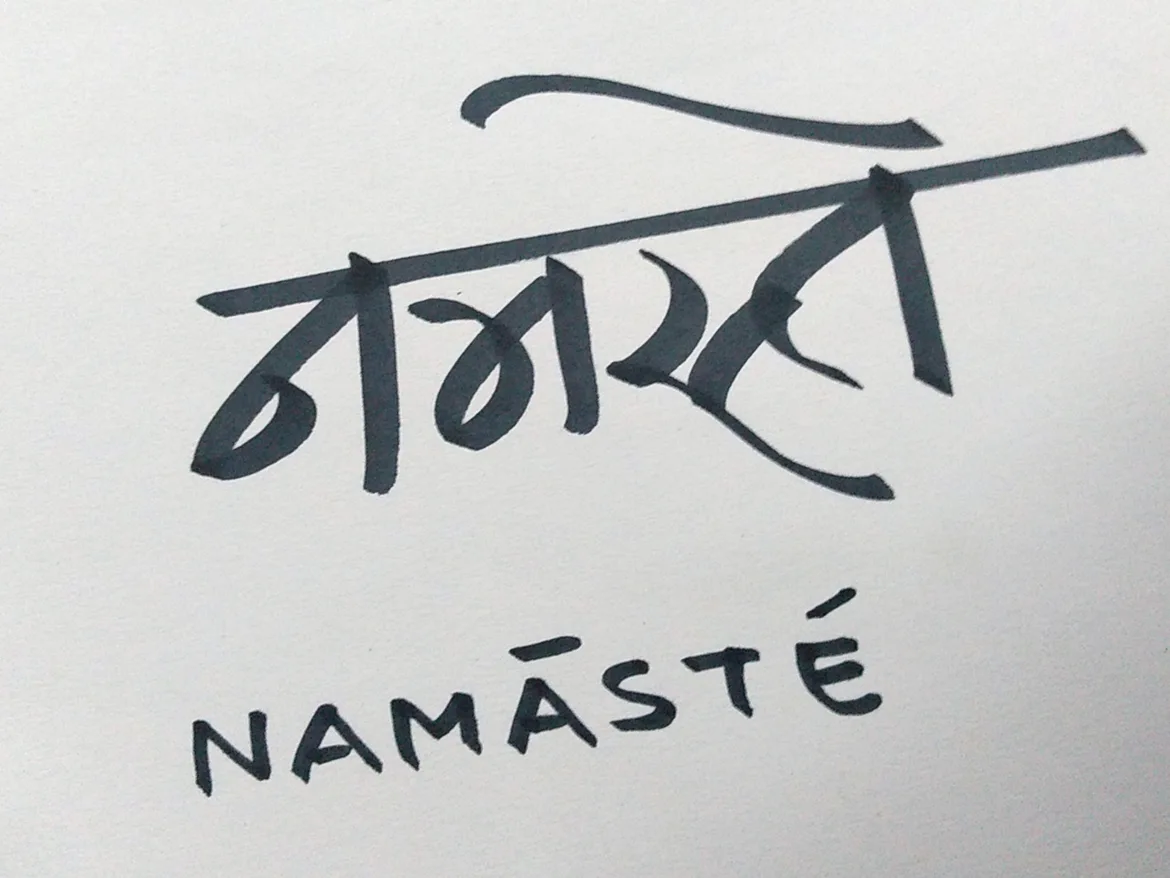 नमस्ते
NAMĀSTÉ